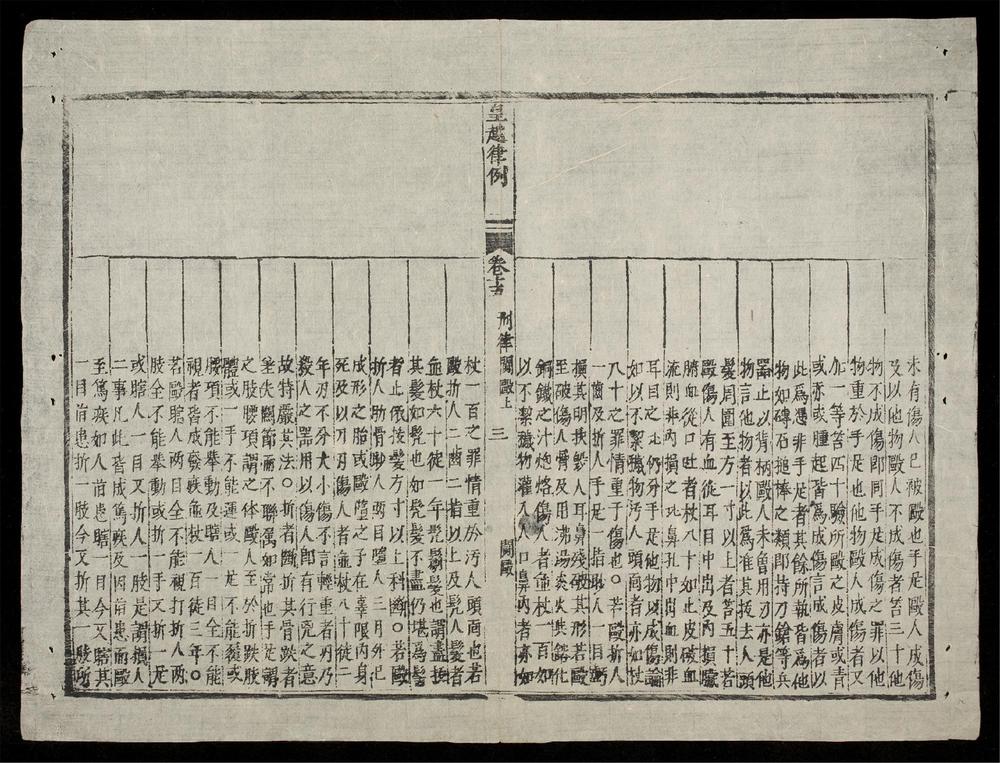 未有傷人已被毆也手足毆人成傷
及以他物毆人不成傷者笞三十他
物不成傷即同手足成傷之罪以他
物重於手足也他物毆人成傷者又
加一等笞四十驗所毆之皮膚或青
或赤或腫起皆為成傷言成傷者以
此為憑非手足者其餘所執皆為他
物如磚石搥棒之類即持刀鎗等兵
器止以背柄毆人未曾用刃亦是他
物言他物者以此為准其拔去人頭
髮周圍至方一寸以上者笞五十若
毆傷人有血從耳目中出及內損臟
腑血從口吐者杖八十如止皮破血
流則非內損之比鼻孔中出血則非
耳目之比仍分手足他物以成傷論
如以不絜穢物污人頭面者亦如杖
八十之罪情重于傷也〇若毆折人
一齒及折人手足一指眇人一目
損其明抉毀人耳鼻殘破其形若毆
至破傷人骨及用沸湯炎火其鎔化
銅鐵之汁炮烙傷人者並杖一百如
以不絜穢物灌入人口鼻內者亦如
皇越律例 卷十五 刑律 鬪毆上 三 鬪毆
杖一百之罪情重於污人頭面也若
毆折人二齒二指以上及髡人髮者
並杖六十徒一年髡鬄髮也謂盡拔
其髮如髡也如髡髮不盡仍堪為髻
者止依拔髮方寸以上科斷〇若毆
折人肋骨眇人兩目墮人三月外已
成形之胎或毆墮之子在辜限內身
死及以刀刃傷人者並杖八十徒二
年刃不分大小傷不言輕重者刃乃
殺人之器用以傷人即有行兇之意
故特嚴其法〇折者斷折其骨跌者
差失關節而不聯屬如常也手足謂
之肢腰項謂之体毆人至於折跌肢
體或一手不能運或一足不能履或
腰項不能舉動及瞎人一目全不能
視者皆成廢疾並杖一百徒三年〇
若毆瞎人兩目全不能視打折人兩
肢全不能舉動或折一手又折一足
或瞎人一目又折人一肢是謂損人
二事凡此皆成篤疾及因前患而毆
至篤疾如人前患瞎一目今又瞎其
一目前患折一肢今又折其一肢所